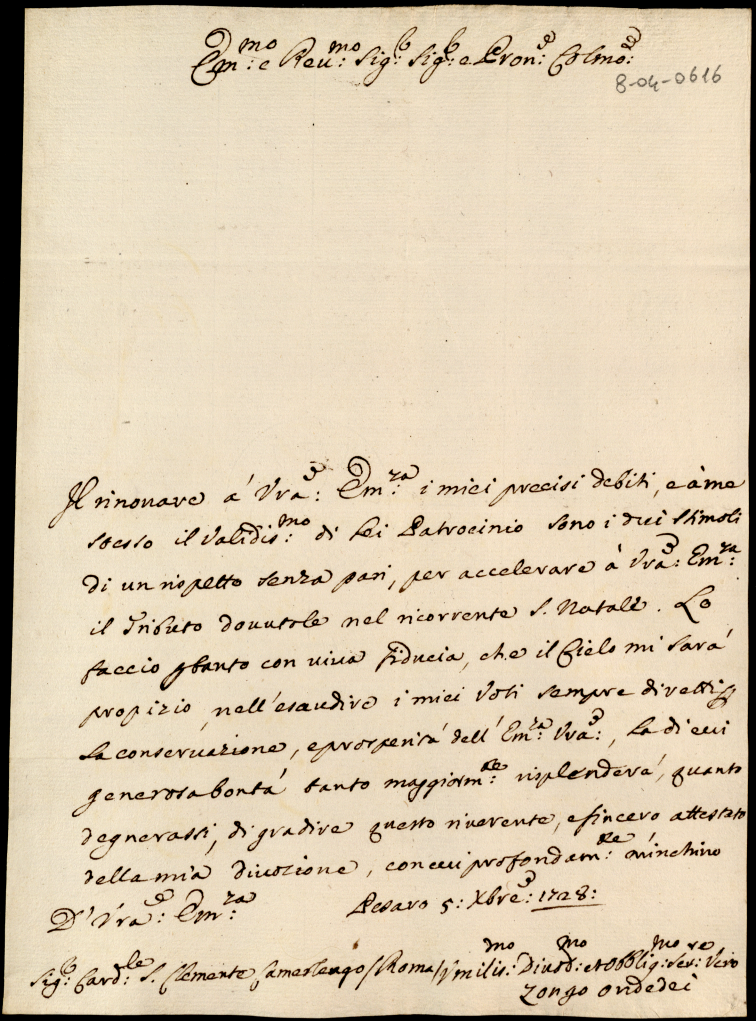 Em:mo e Reu:mo Sig:r Sig:r e Pron:e Colmo:
8-04-0616
Il rinouare à Vra: Em:za i miei precisi debiti, e à me
stesso il Validis:mo di Lei Patrocinio sono i duei stimoli
di un rispetto senza pari, per accelerare à Vra: Em:za
il Tributo douutole nel ricorrente S. Natale. Lo
faccio pertanto con viua fiducia, che il Cielo mi sarà
propizio, nell'esaudire i miei Voti sempre diretti p
la conseruazione, e prosperità dell'Em:za Vra:, la di cui
generosa bontà tanto maggiorm:te risplenderà, quanto
degnerassi, di gradire questo riuerente, e sincero attestato
della mia diuozione, con cui profondam:te m'inchino
D' Vra: Em:za Pesaro 5: Xbre: 1728:
Sig:r Card:le S. Clemente Camerlengo /Roma/ Vmilis:mo Diuo:mo et Obblig:mo Ser:re Vero
Zongo Ondedei